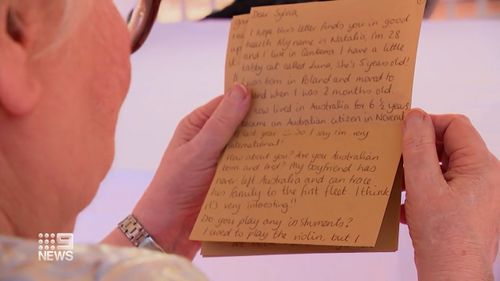 Dear Sylvia,
I hope this letter finds you in good
health. My name is Natalia, I'm 28
and I live in Canberra. I have a little
tabby cat called Luna, she's 5 years old!
I was born in Poland and moved to
and when I was 2 months old.
now lived in Australia for 6 ½ years
became an Australian citizen in Novem
last year So I say I'm very
international!
How about you? Are you Australian
born and bred? My boyfriend has
never left Australia and can trace
his family to the first fleet. I think
it's very interesting!!
Do you play any instruments?
I used to play the violin, but I
9
NEWS